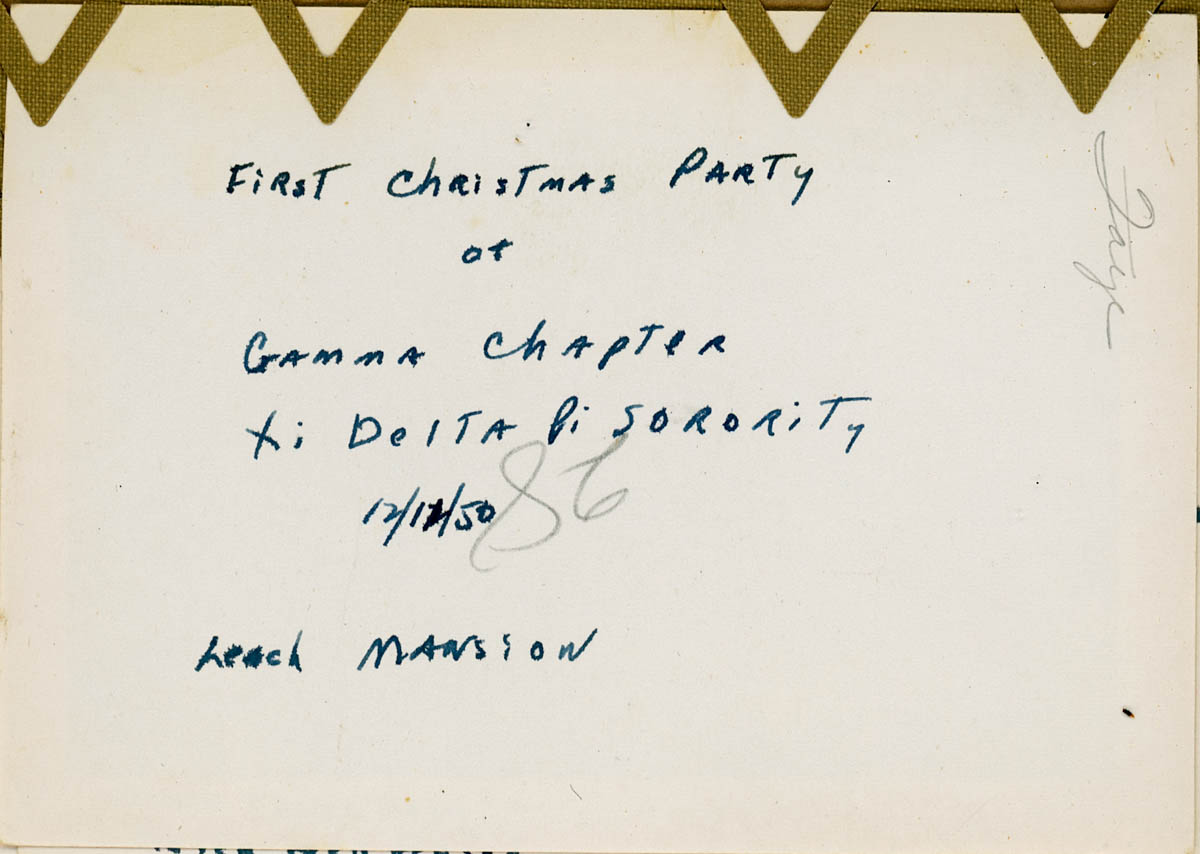 First Christmas Party
of
Gamma Chapter
Xi Delta Pi Sorority
12/11/50
86
Leach Mansion
Faye